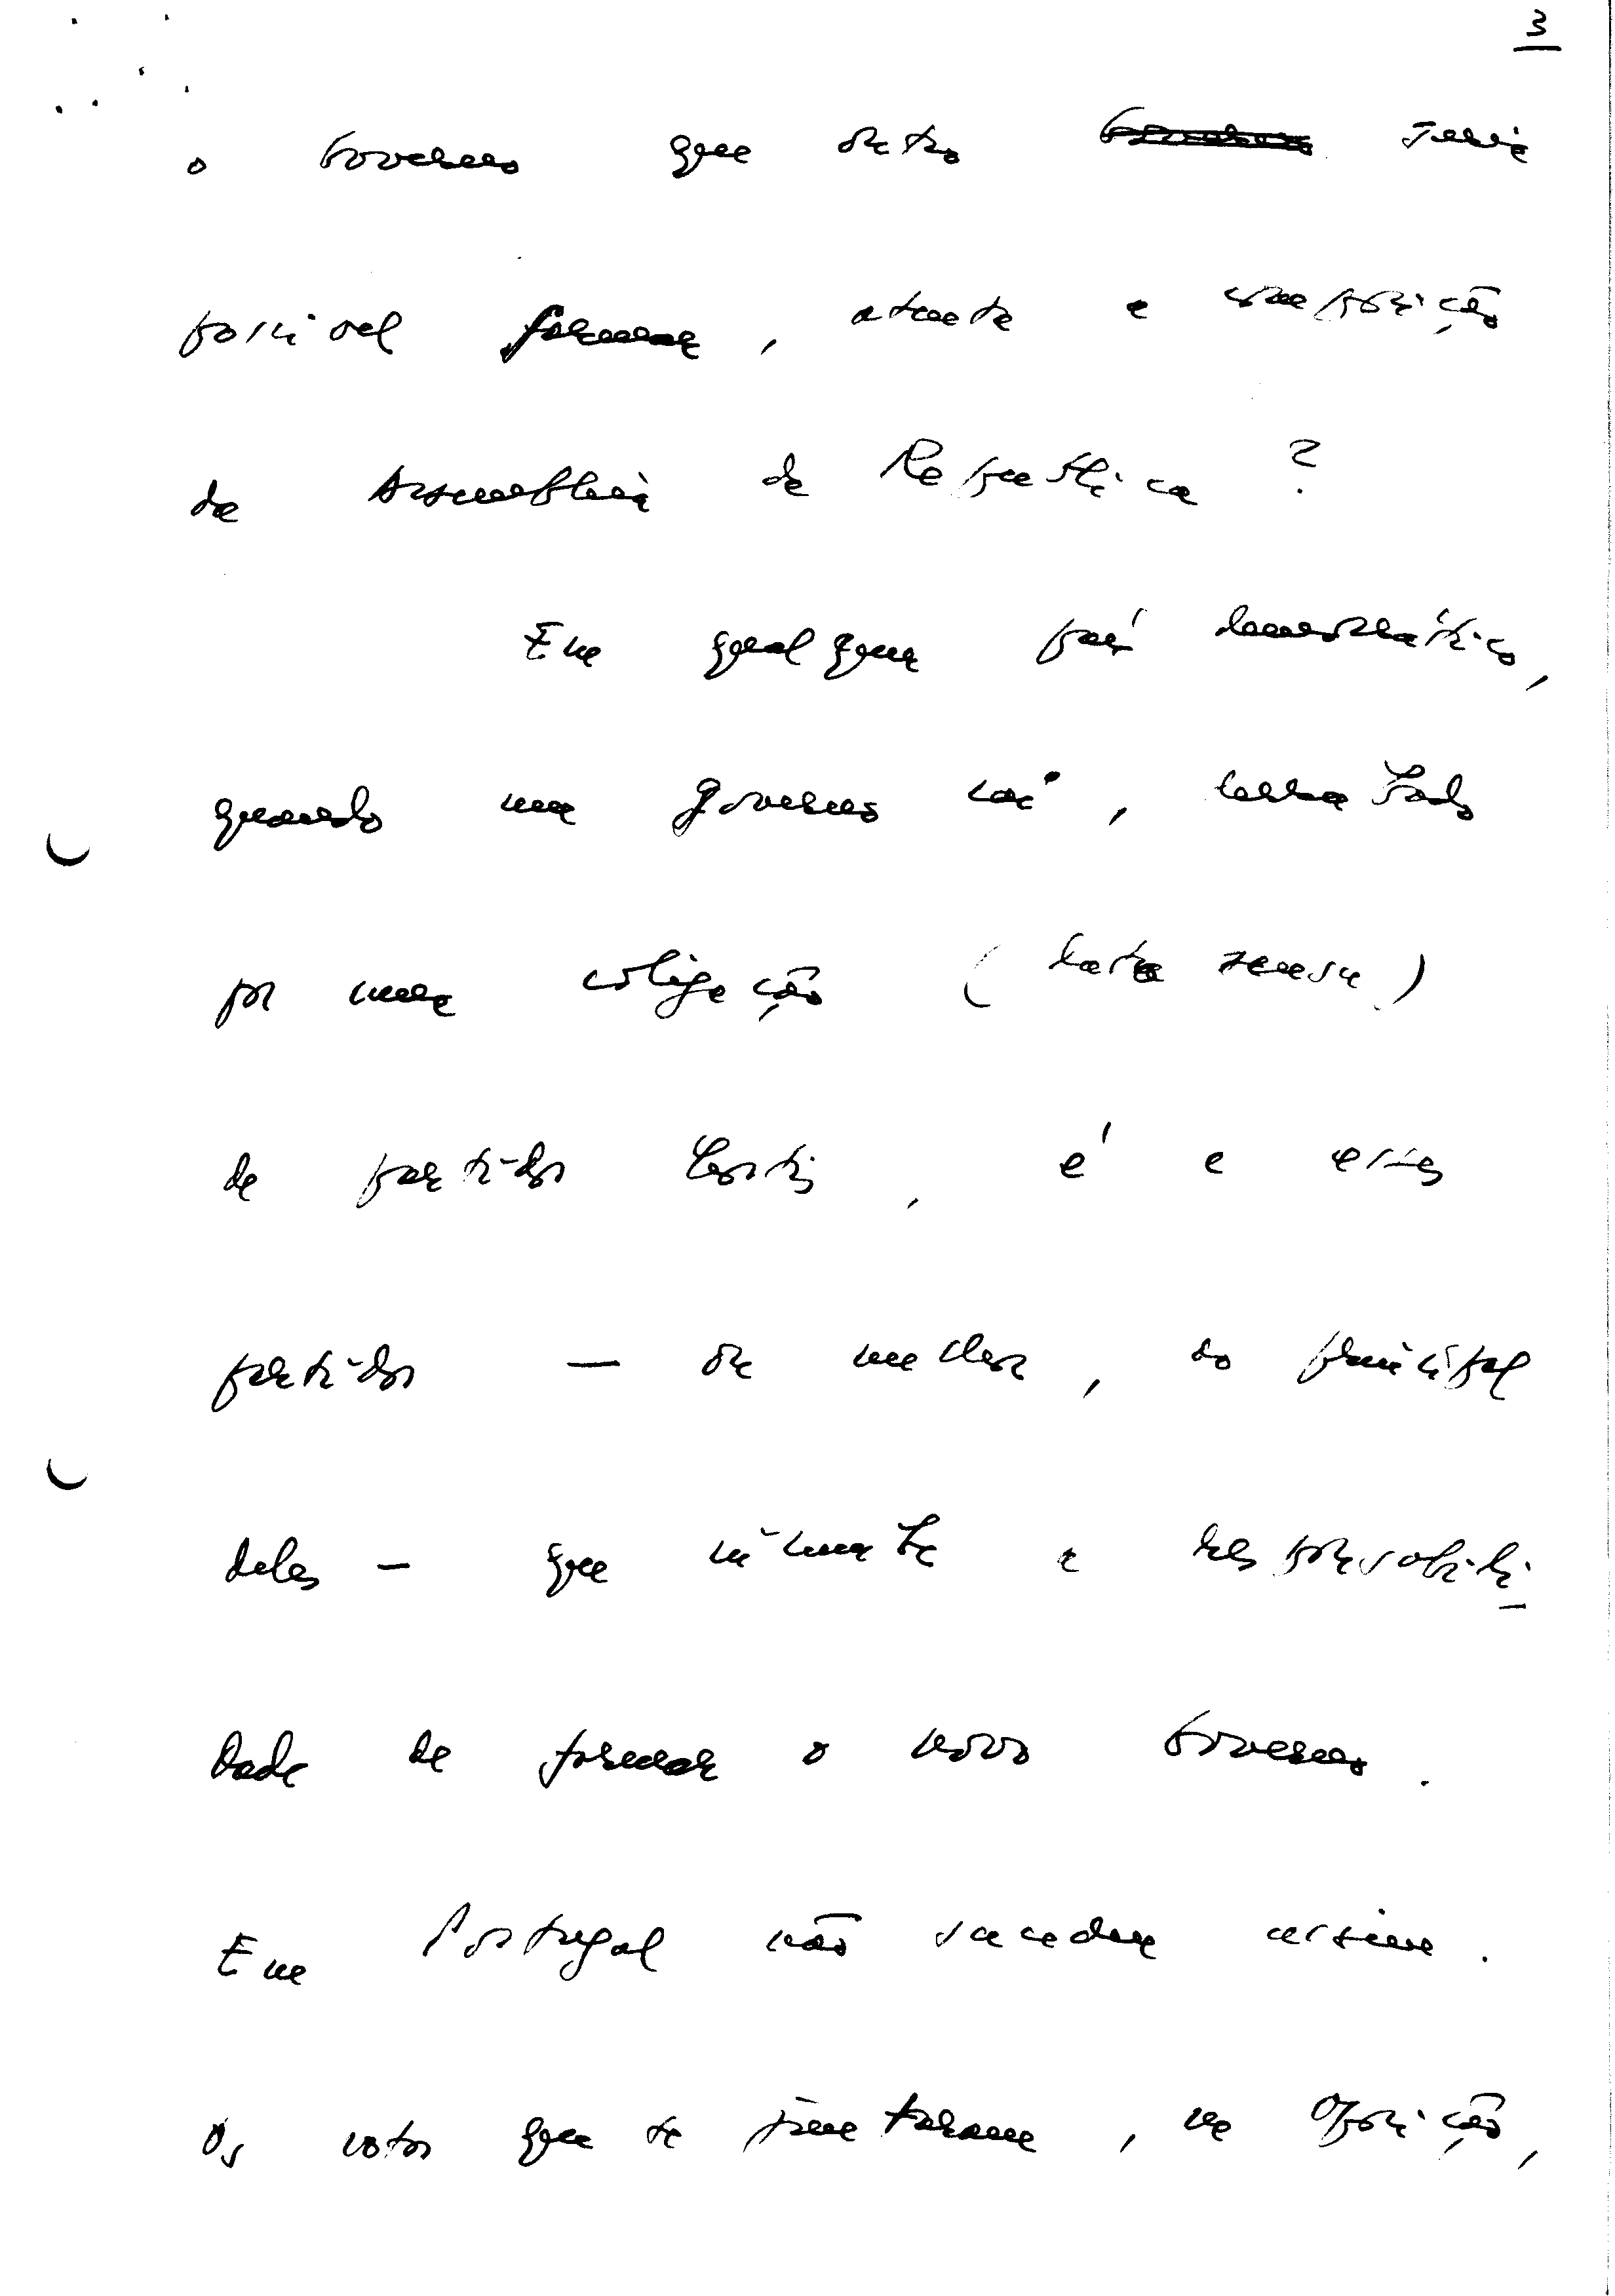 3
o Governo que outro Governo seria
possível formar, atenta a composição
da Assembleia da República?
Em qualquer país democrático,
quando um governo cai, derrubado
por uma coligação (lato sensu)
de partidos hostis, é a esses
partidos — ou melhor, ao principal
deles — que incumbe a responsabili-
dade de formar o novo Governo.
Em Portugal não sucedeu assim.
Os votos que se juntaram, na Oposição,